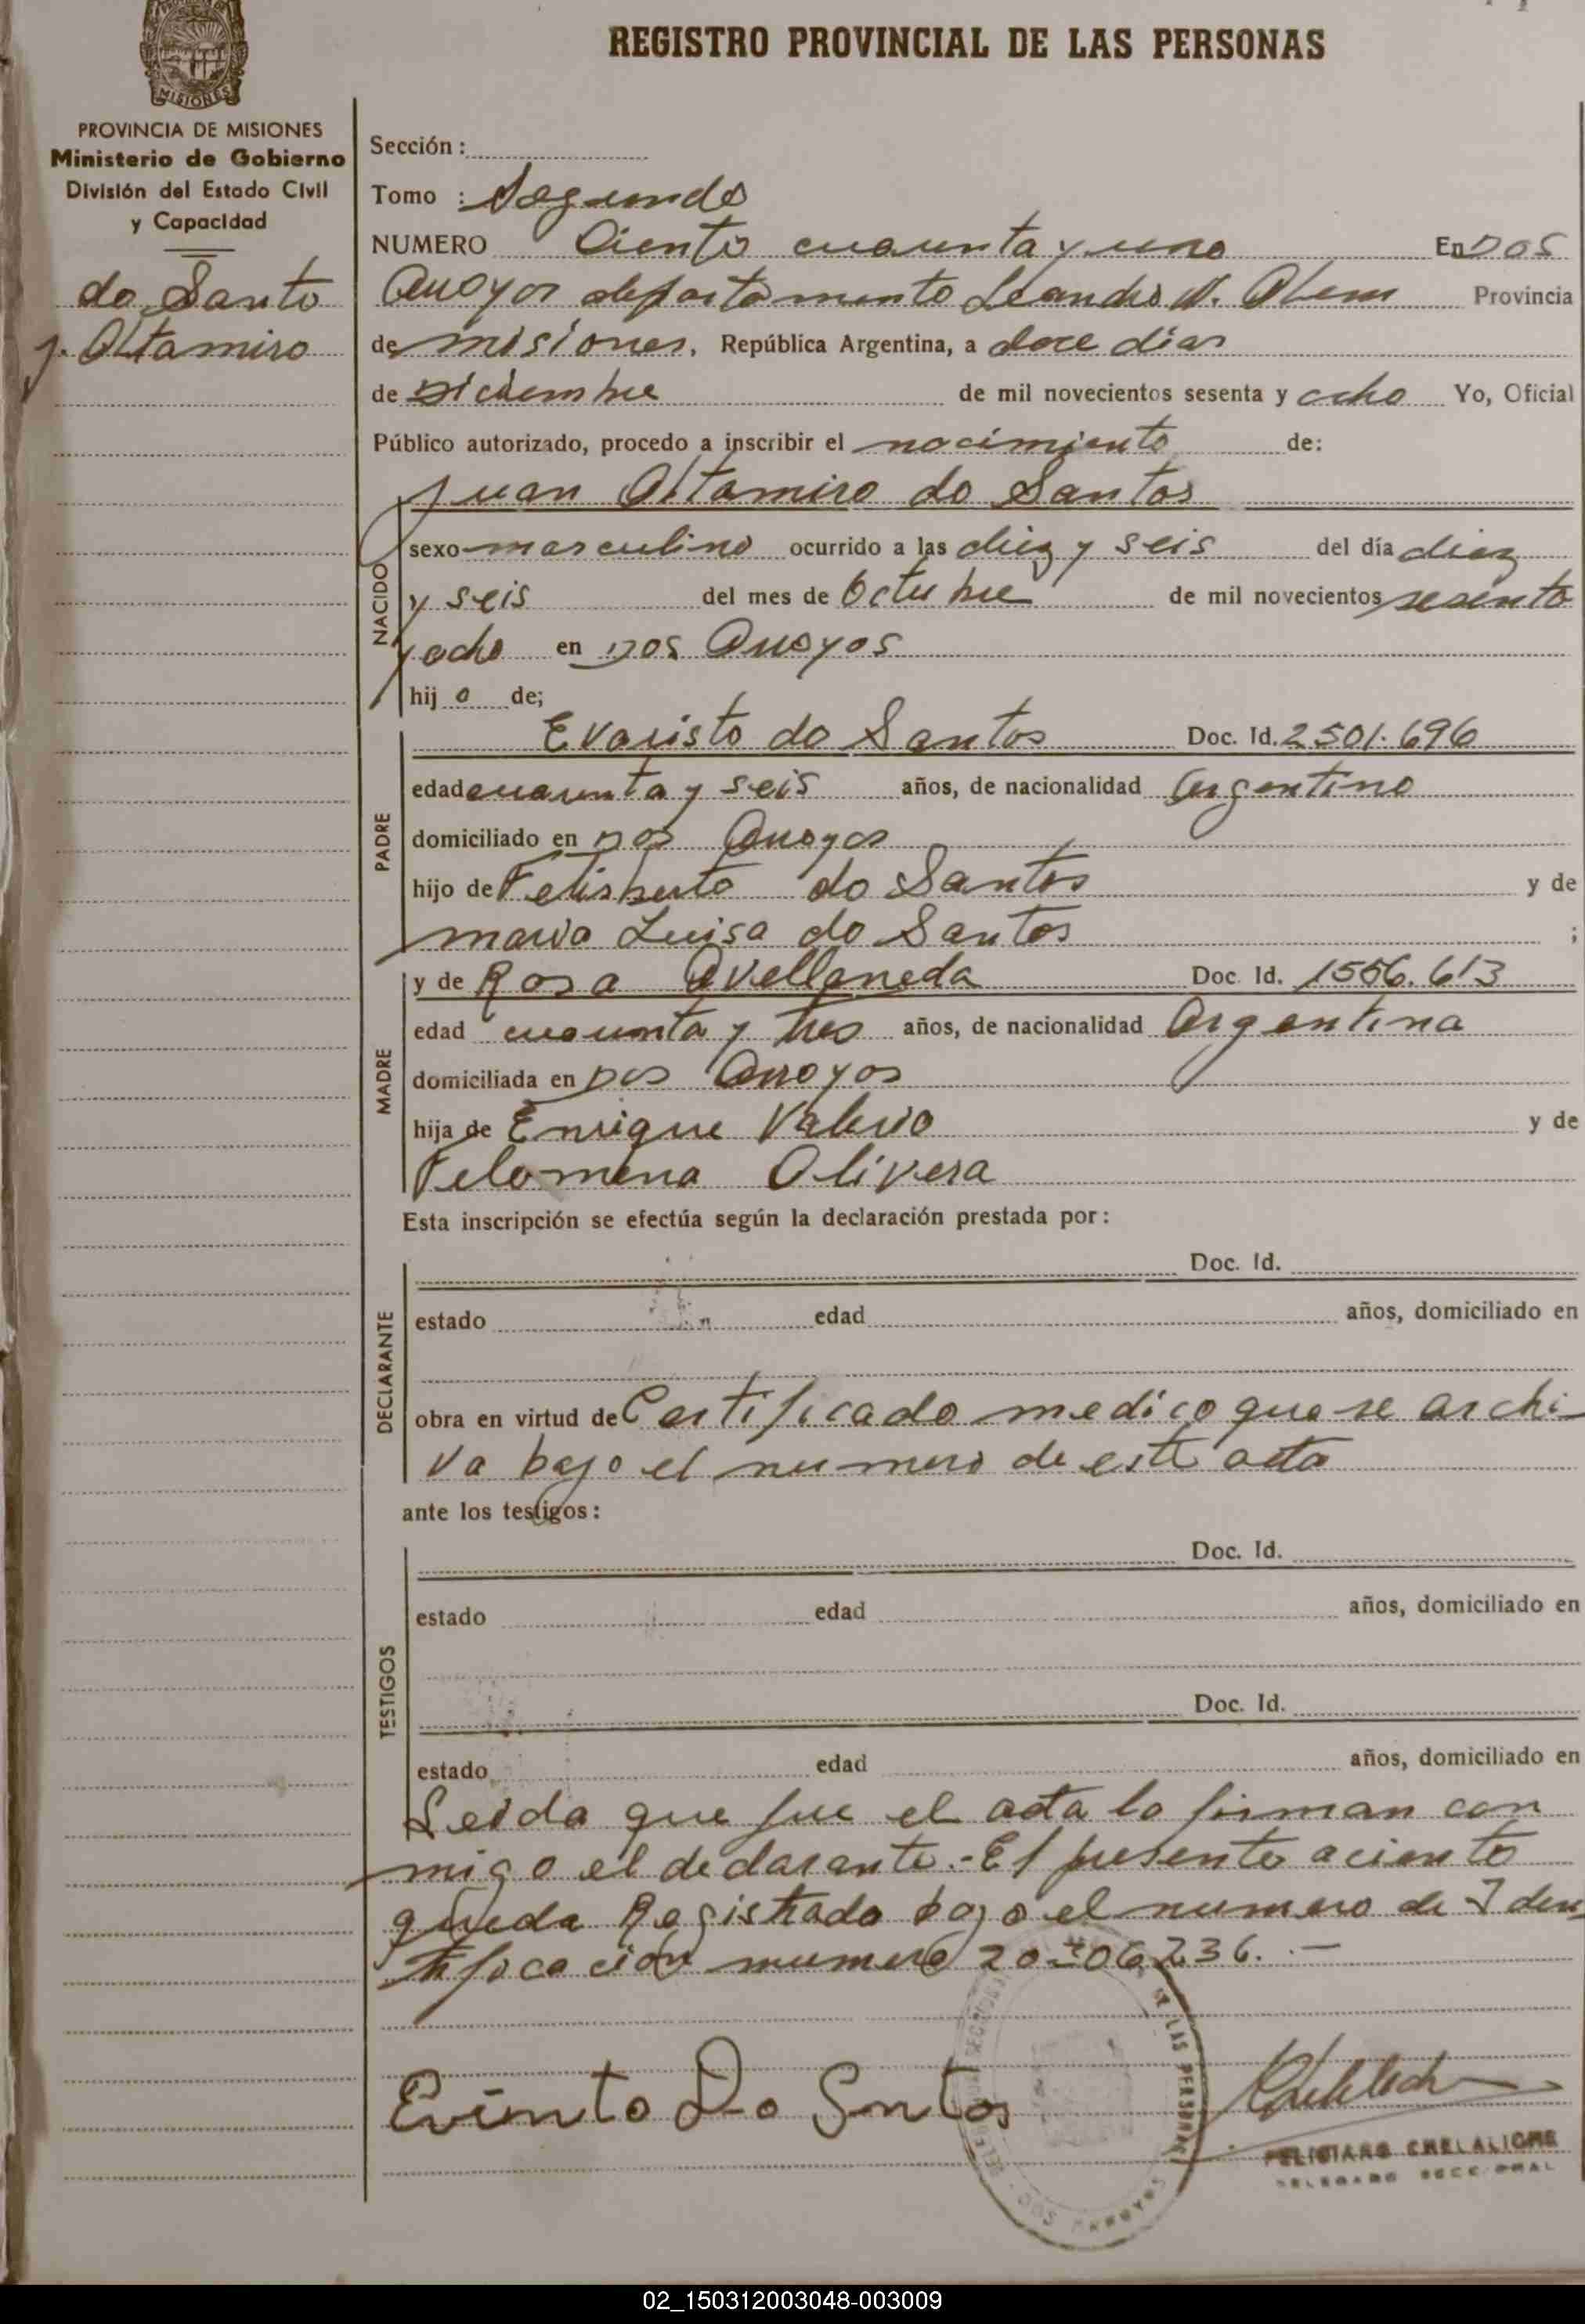 REGISTRO PROVINCIAL DE LAS PERSONAS
MISIONES
PROVINCIA DE MISIONES
Ministerio de Gobierno
División del Estado Civil
y Capacidad
do Santo
J. Altamiro
Sección :
Tomo : Segundo
NUMERO Ciento cuarenta y uno En Dos
Arroyos departamento Leandro N. Alem Provincia
de misiones, República Argentina, a doce dias
de Diciembre de mil novecientos sesenta y ocho Yo, Oficial
Público autorizado, procedo a inscribir el nacimiento de:
Juan Altamiro do Santos
NACIDO
sexo masculino ocurrido a las diez y seis del día diez
y seis del mes de Octubre de mil novecientos sesenta
y ocho en Dos Arroyos
hij o de;
PADRE
Evaristo do Santos Doc. Id. 2501.696
edad cuarenta y seis años, de nacionalidad Argentino
domiciliado en Dos Arroyos
hijo de Felisberto do Santos y de
maria Luisa do Santos ;
MADRE
y de Rosa Avellaneda Doc. Id. 1556.613
edad cuarenta y tres años, de nacionalidad Argentina
domiciliada en Dos Arroyos
hija de Enrique Valerio y de
Felomena Olivera
Esta inscripción se efectúa según la declaración prestada por:
DECLARANTE
Doc. Id.
estado edad años, domiciliado en
obra en virtud de Certificado medico que se archi-
va bajo el numero de este acta
ante los testigos:
TESTIGOS
Doc. Id.
estado edad años, domiciliado en
Doc. Id.
estado edad años, domiciliado en
Leida que fue el acta la firman con
migo el declarante.- El presente aciento
queda Registrado bajo el numero de Iden
tificacion numero 20=06236. .—
Evinto Do Sntos
LAS PERSONAS
DOS ARROYOS
FELICIANO CHELALICHE
DELEGADO SECCIONAL
02_150312003048-003009